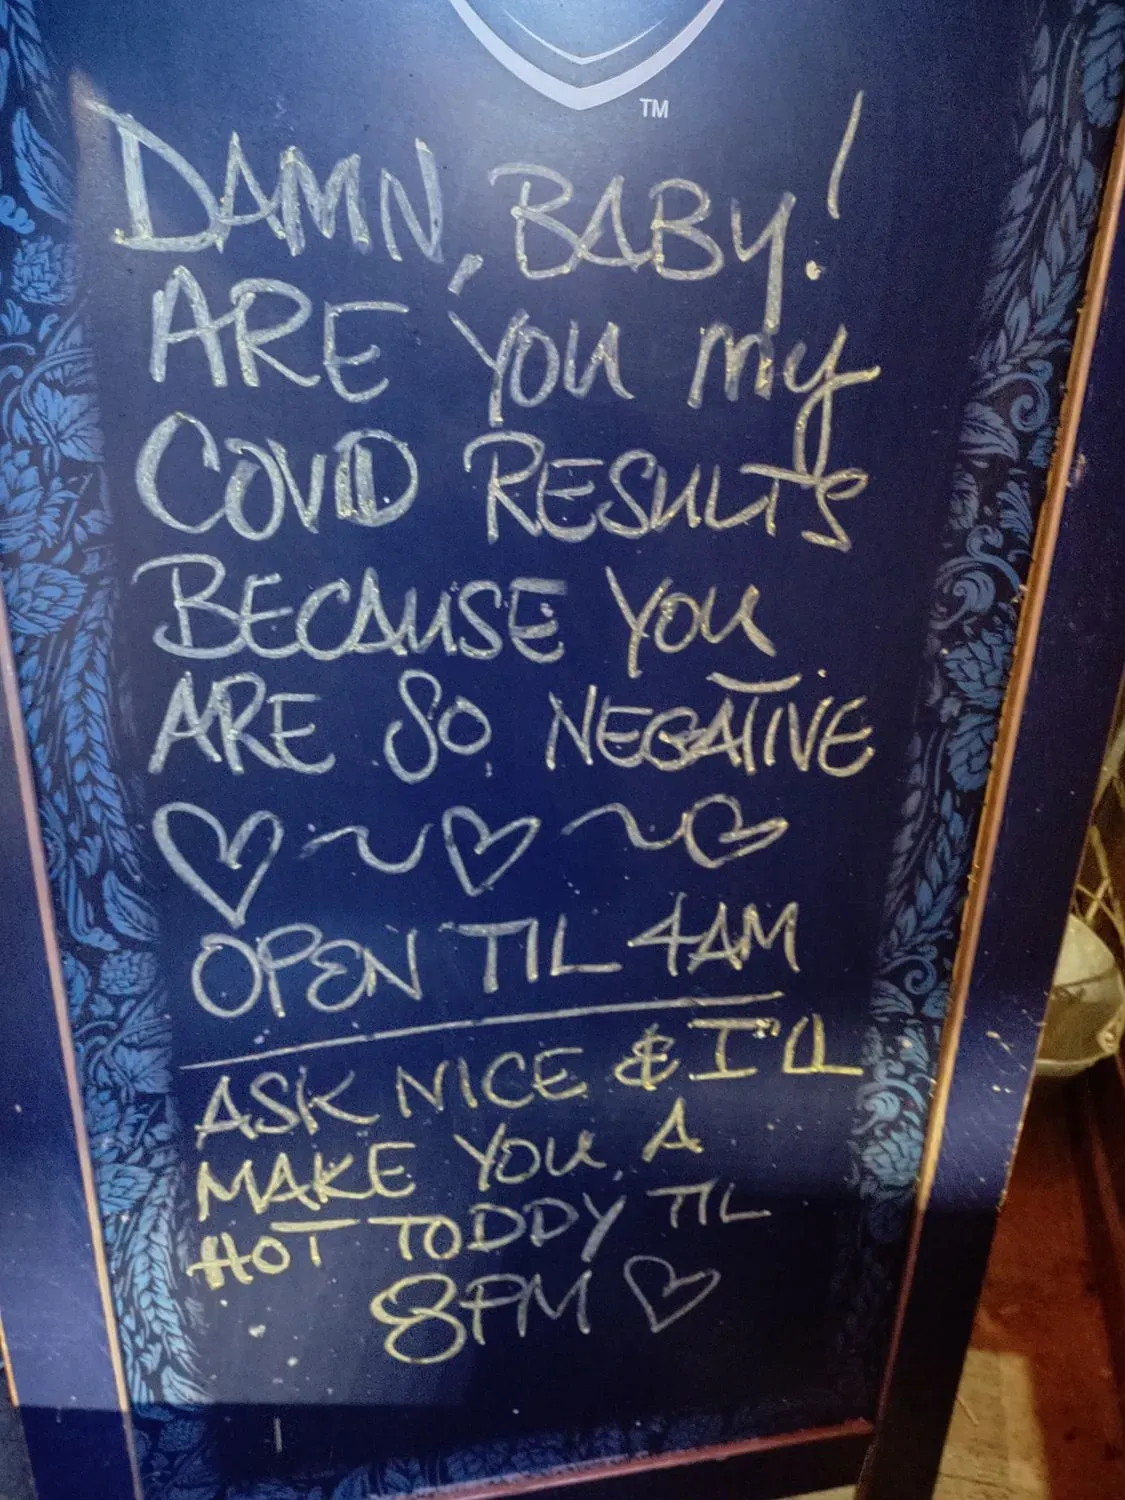 TM
DAMN, BABY!
ARE YOU my
COVID RESULTS
BECAUSE YOU
ARE SO NEGATIVE
OPEN TIL 4AM
ASK NICE & I'LL
MAKE YOU A
HOT TODDY TIL
8PM